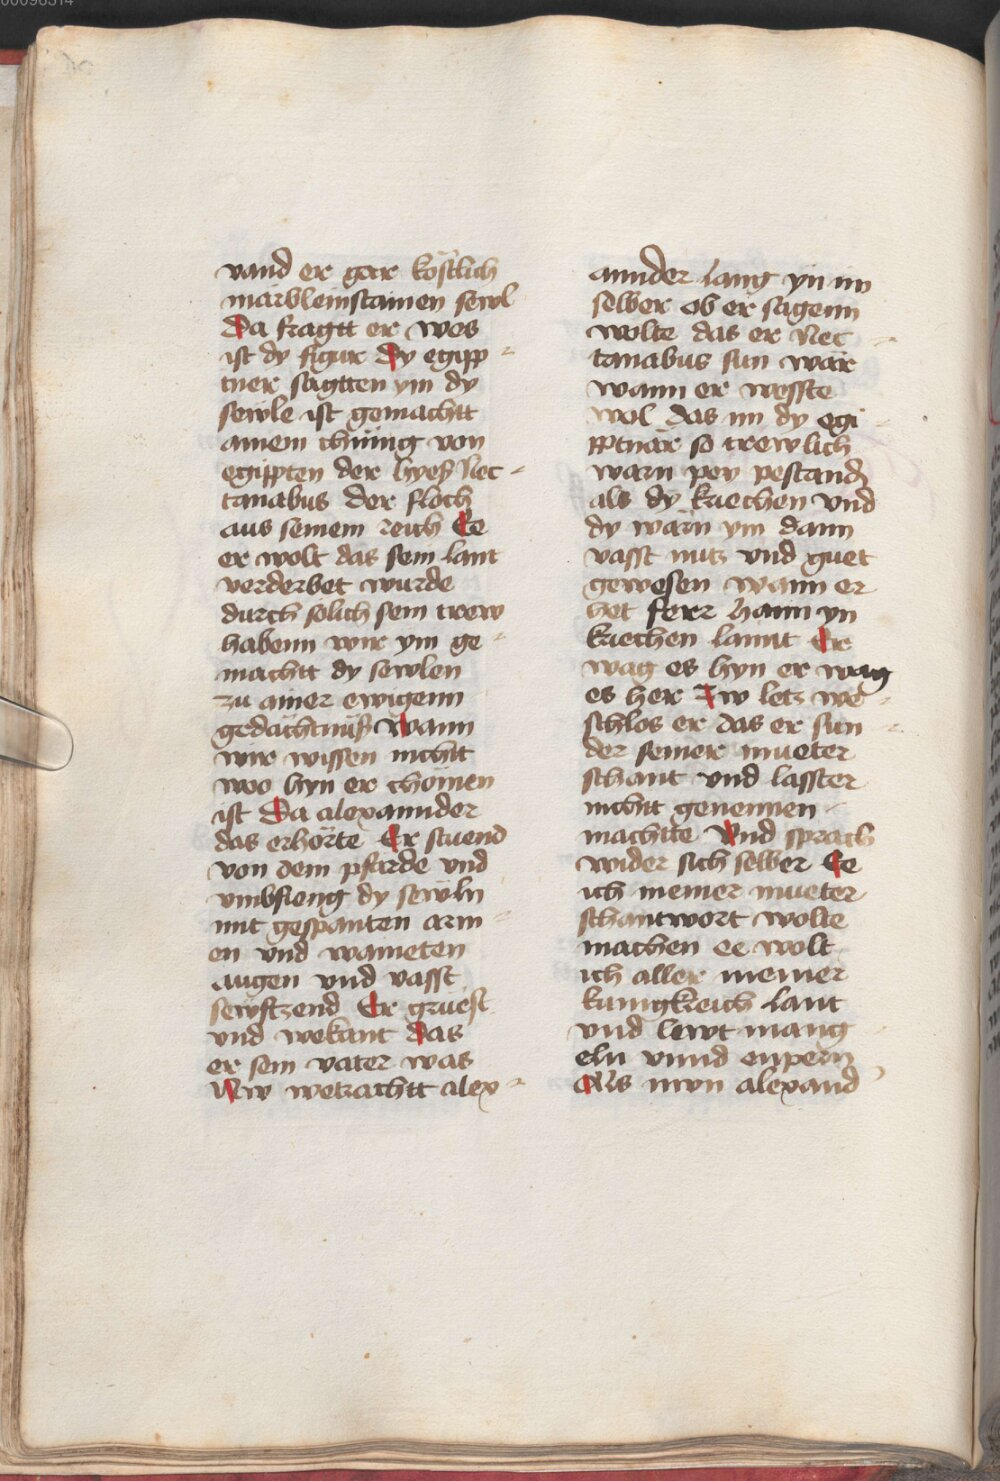 00098314
vand er gar köstlich
märbleinstainen sewl
Da fragtt er wes
ist dy figur Dy egipp
tner sagtten ym dy
sewle ist gemachtt
ainem chünig von
egippten der hyeß Nec
tanabus der floch
aus seinem reich Ee
er wolt das sein lant
verderbet wurde
durch solich sein trew
habenn wir ym ge
machtt dy sewlen
zu ainer ewigenn
gedächtnüß Wann
wir wissen nicht
wo hyn er chömen
ist Da alexannder
das erhörte Er stuend
von dem pfärde vnd
vmbfieng dy sewln
mit gespanten arm
en vnd waineten
augen vnd vasst
sewftzend Er grüest
vnd wekant Das
er sein vater was
Nw wetrachtt alex
annder lang yn im
selber ob er sagenn
wolte das er Nec
tanabus sun wär
wann er wesste
wol das im dy egi
pptnär so trewlich
warn pey pestand
als dy kriechen vnd
dy wärn ym dann
vasst nutz vnd guet
gewesen wann er
het ferr haim yn
kriechen lannt Er
wag es hyn er wag
es her Zw letz we
schlos er das er sün
der seiner mueter
schant vnd lasster
nicht genennen
machtte Vnd sprach
wider sich selber Ee
ich meiner mueter
schantwort wolte
machen ee wolt
ich aller meiner
kunigkreich lant
vnd lewt mang
eln vnnd enpern
Als nwn alexand